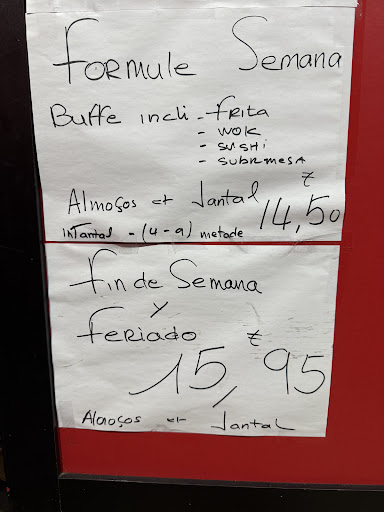 Formule Semana
Buffe incli - Frita
- wok
- sushi
- subrmesa
Almoços et Jantal
€
14,50
inTantal - (4-9) metade
Fin de Semana
y
Feriado €
15,95
Almoços et Jantal